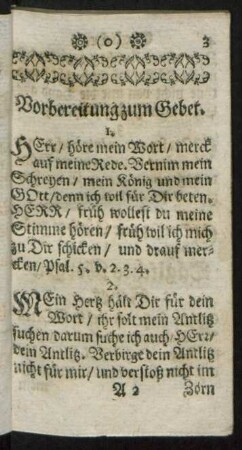 (o) 3
Vorbereitung zum Gebet.
1.
HErr / höre mein Wort / merck
auf meine Rede. Vernim mein
Schreyen / mein König und mein
GOtt / denn ich wil für Dir beten.
HERR / früh wollest du meine
Stimme hören / früh wil ich mich
zu Dir schicken / und drauf mer-
cken / Psal. 5. v. 2. 3. 4.
2.
MEin Hertz hält Dir für dein
Wort / ihr solt mein Antlitz
suchen darum suche ich auch / HErr /
dein Antlitz. Verbirge dein Antlitz
nicht für mir / und verstoß nicht im
A 2 Zorn